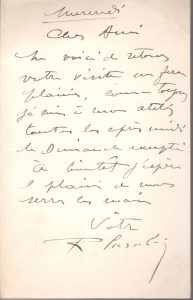 Mercredi
Cher Ami
Me voici de retour
votre visite me fera
plaisir, comme toujours
je suis à mon atelier
toutes les après midi
le Dimanche excepté
à bientôt j'espère
le plaisir de vous
serrer les mains
Votre